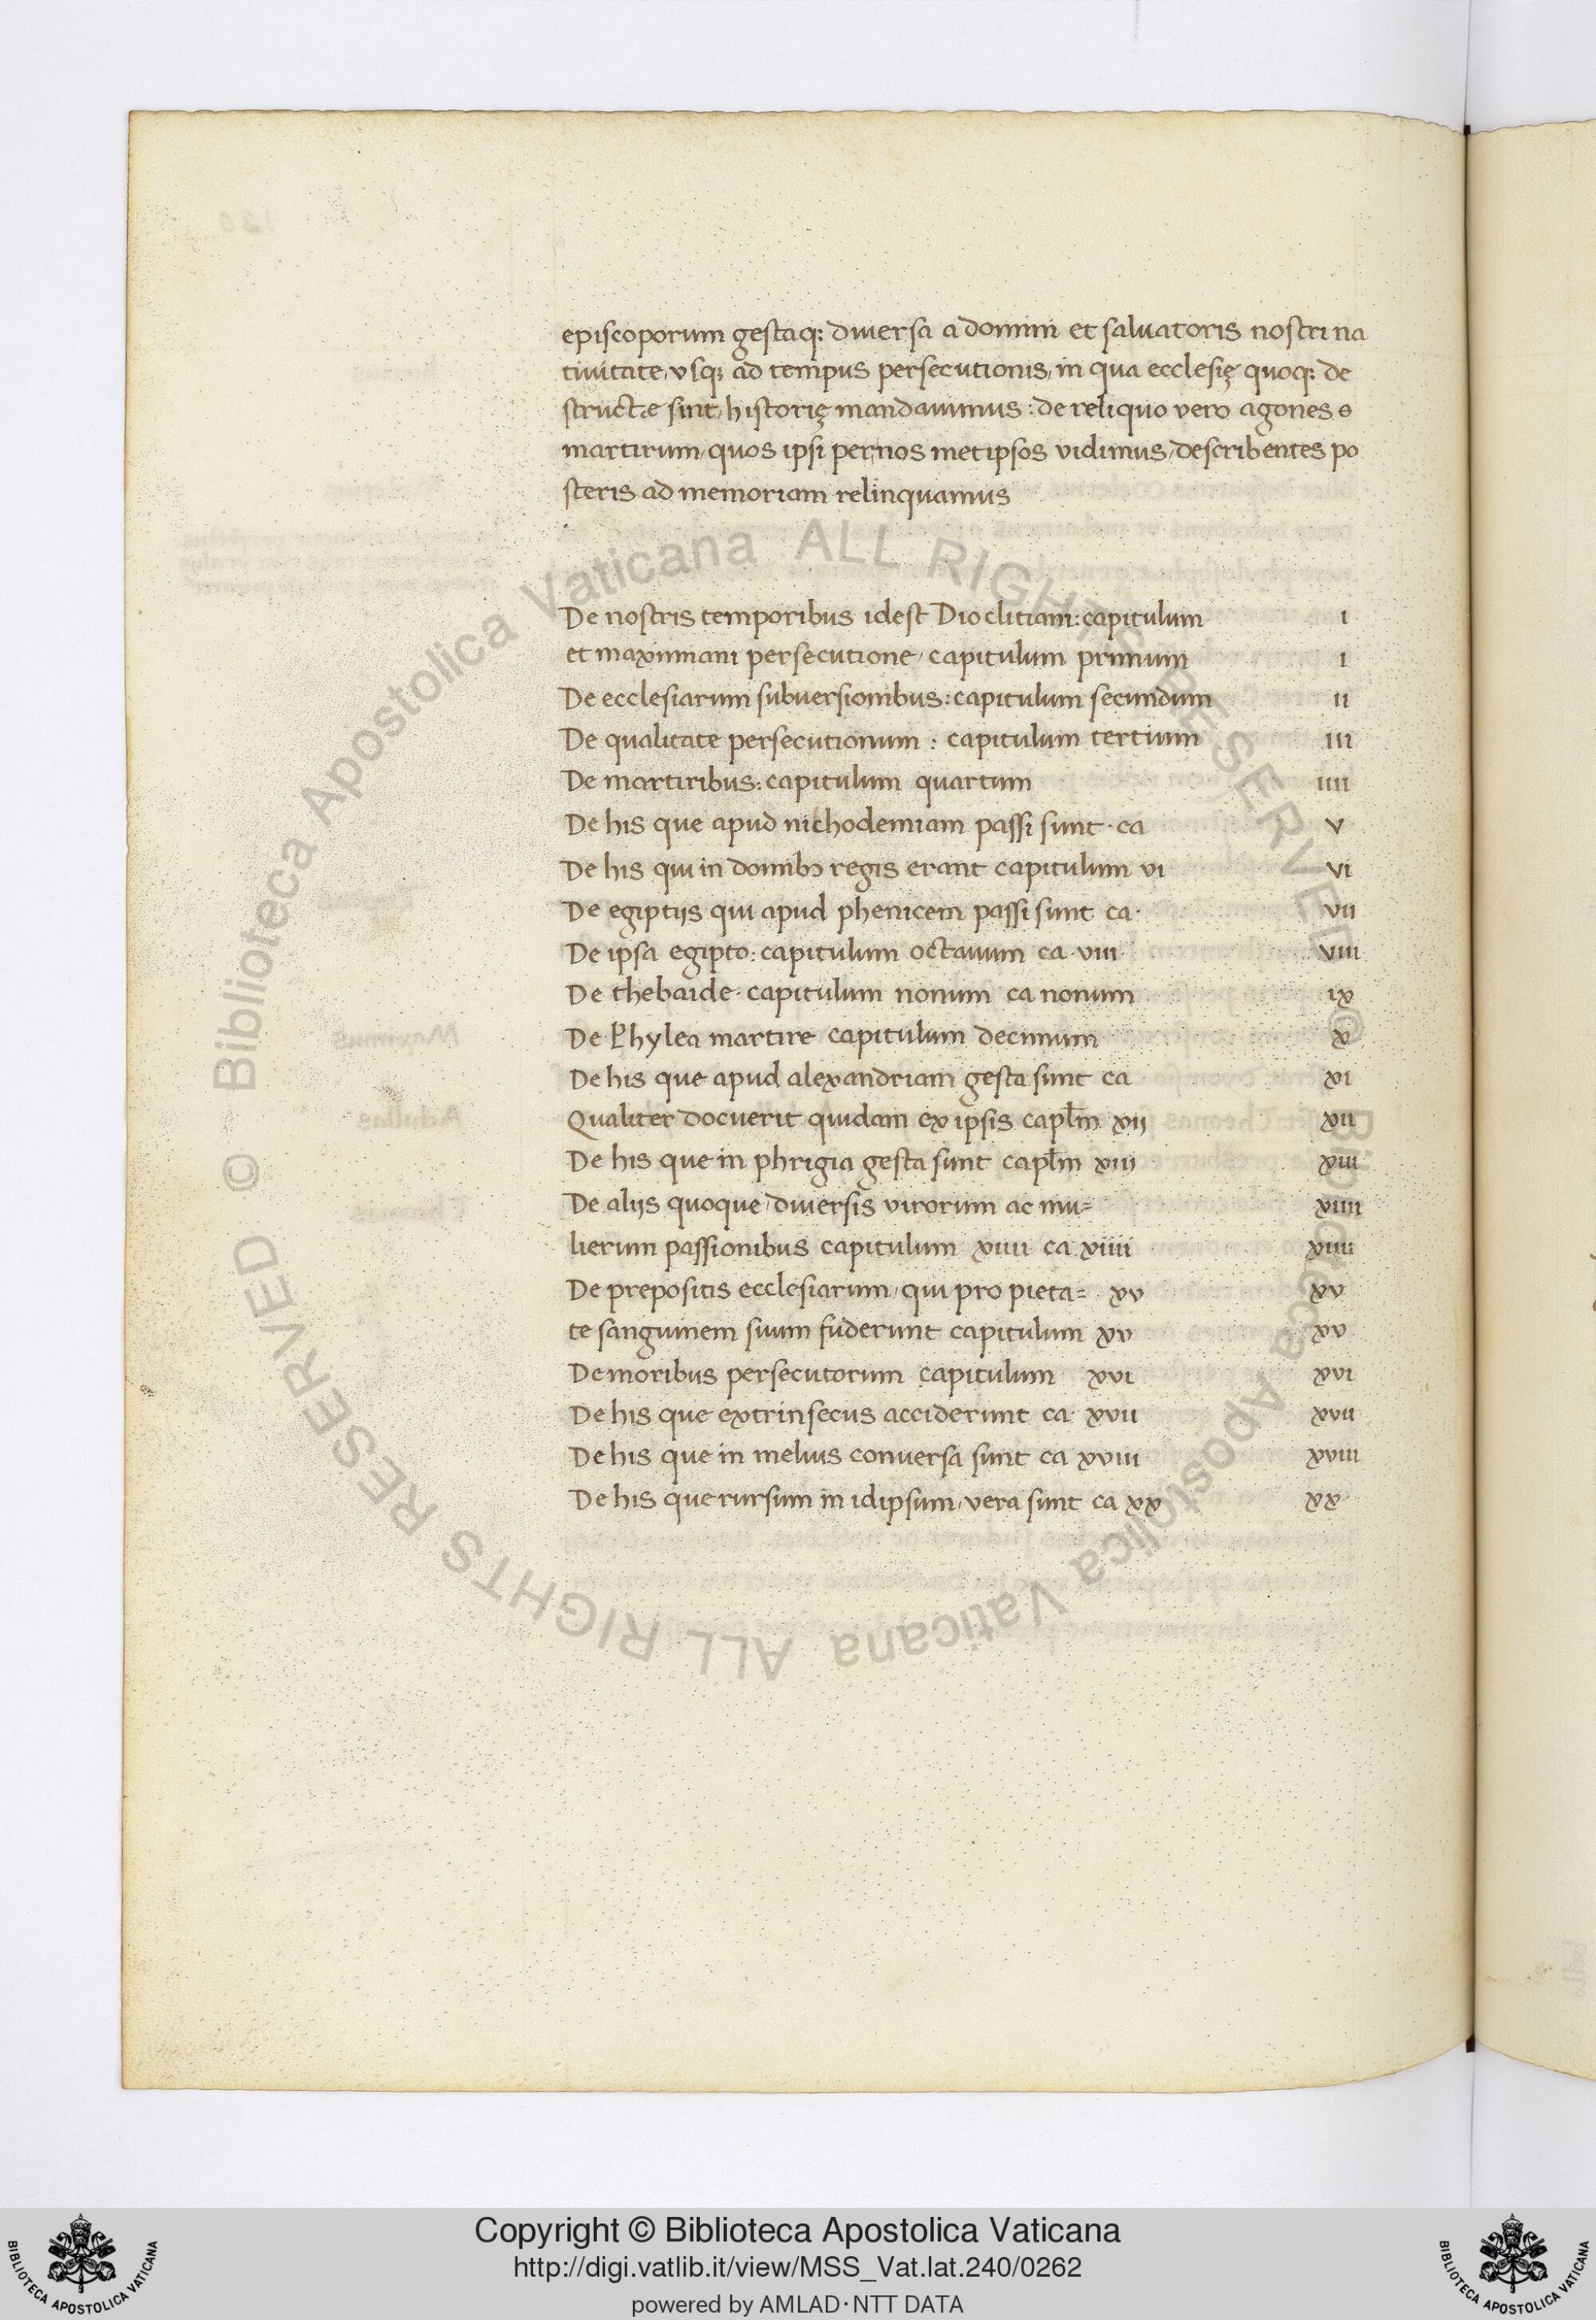 episcoporum gestaq; diuersa a domini et saluatoris nostri na
tiuitate, vsq; ad tempus persecutionis, in qua ecclesię quoq; de
structæ sint, historię mandauimus : de reliquo vero agones
martirum, quos ipsi per nos metipsos vidimus, describentes po
steris ad memoriam relinquamus
De nostris temporibus idest Dioclitiani : capitulum i
et maximiani persecutione, capitulum primum i
De ecclesiarum subuersionibus : capitulum secundum ii
De qualitate persecutionum : capitulum tertium iii
De martiribus : capitulum quartum iiii
De his que apud nichodemiam passi sunt · ca v
De his qui in domibꝫ regis erant capitulum vi vi
De egiptijs qui apud phenicem passi sunt ca · vii
De ipsa egipto : capitulum octauum ca · viii · viii
De thebaide · capitulum nonum ca nonum ix
De Phylea martire capitulum decimum x
De his que apud alexandriam gesta sunt ca xi
Qualiter docuerit quidam ex ipsis capl̄m xij xii
De his que in phrigia gesta sunt capl̄m xiij xiii
De alijs quoque, diuersis virorum ac mu= xiiii
lierum passionibus capitulum xiiii ca xiiii xiiii
De prepositis ecclesiarum, qui pro pieta= xv xv
te sanguinem suum fuderunt capitulum xv xv
De moribus persecutorum capitulum xvi xvi
De his que extrinsecus acciderunt ca · xvii xvii
De his que in melius conuersa sunt ca xviii xviii
De his que rursum in idipsum, vera sunt ca xx xx
© Biblioteca Apostolica Vaticana ALL RIGHTS RESERVED
© Biblioteca Apostolica Vaticana ALL RIGHTS RESERVED
Copyright © Biblioteca Apostolica Vaticana
http://digi.vatlib.it/view/MSS_Vat.lat.240/0262
powered by AMLAD · NTT DATA
BIBLIOTECA APOSTOLICA VATICANA
BIBLIOTECA APOSTOLICA VATICANA